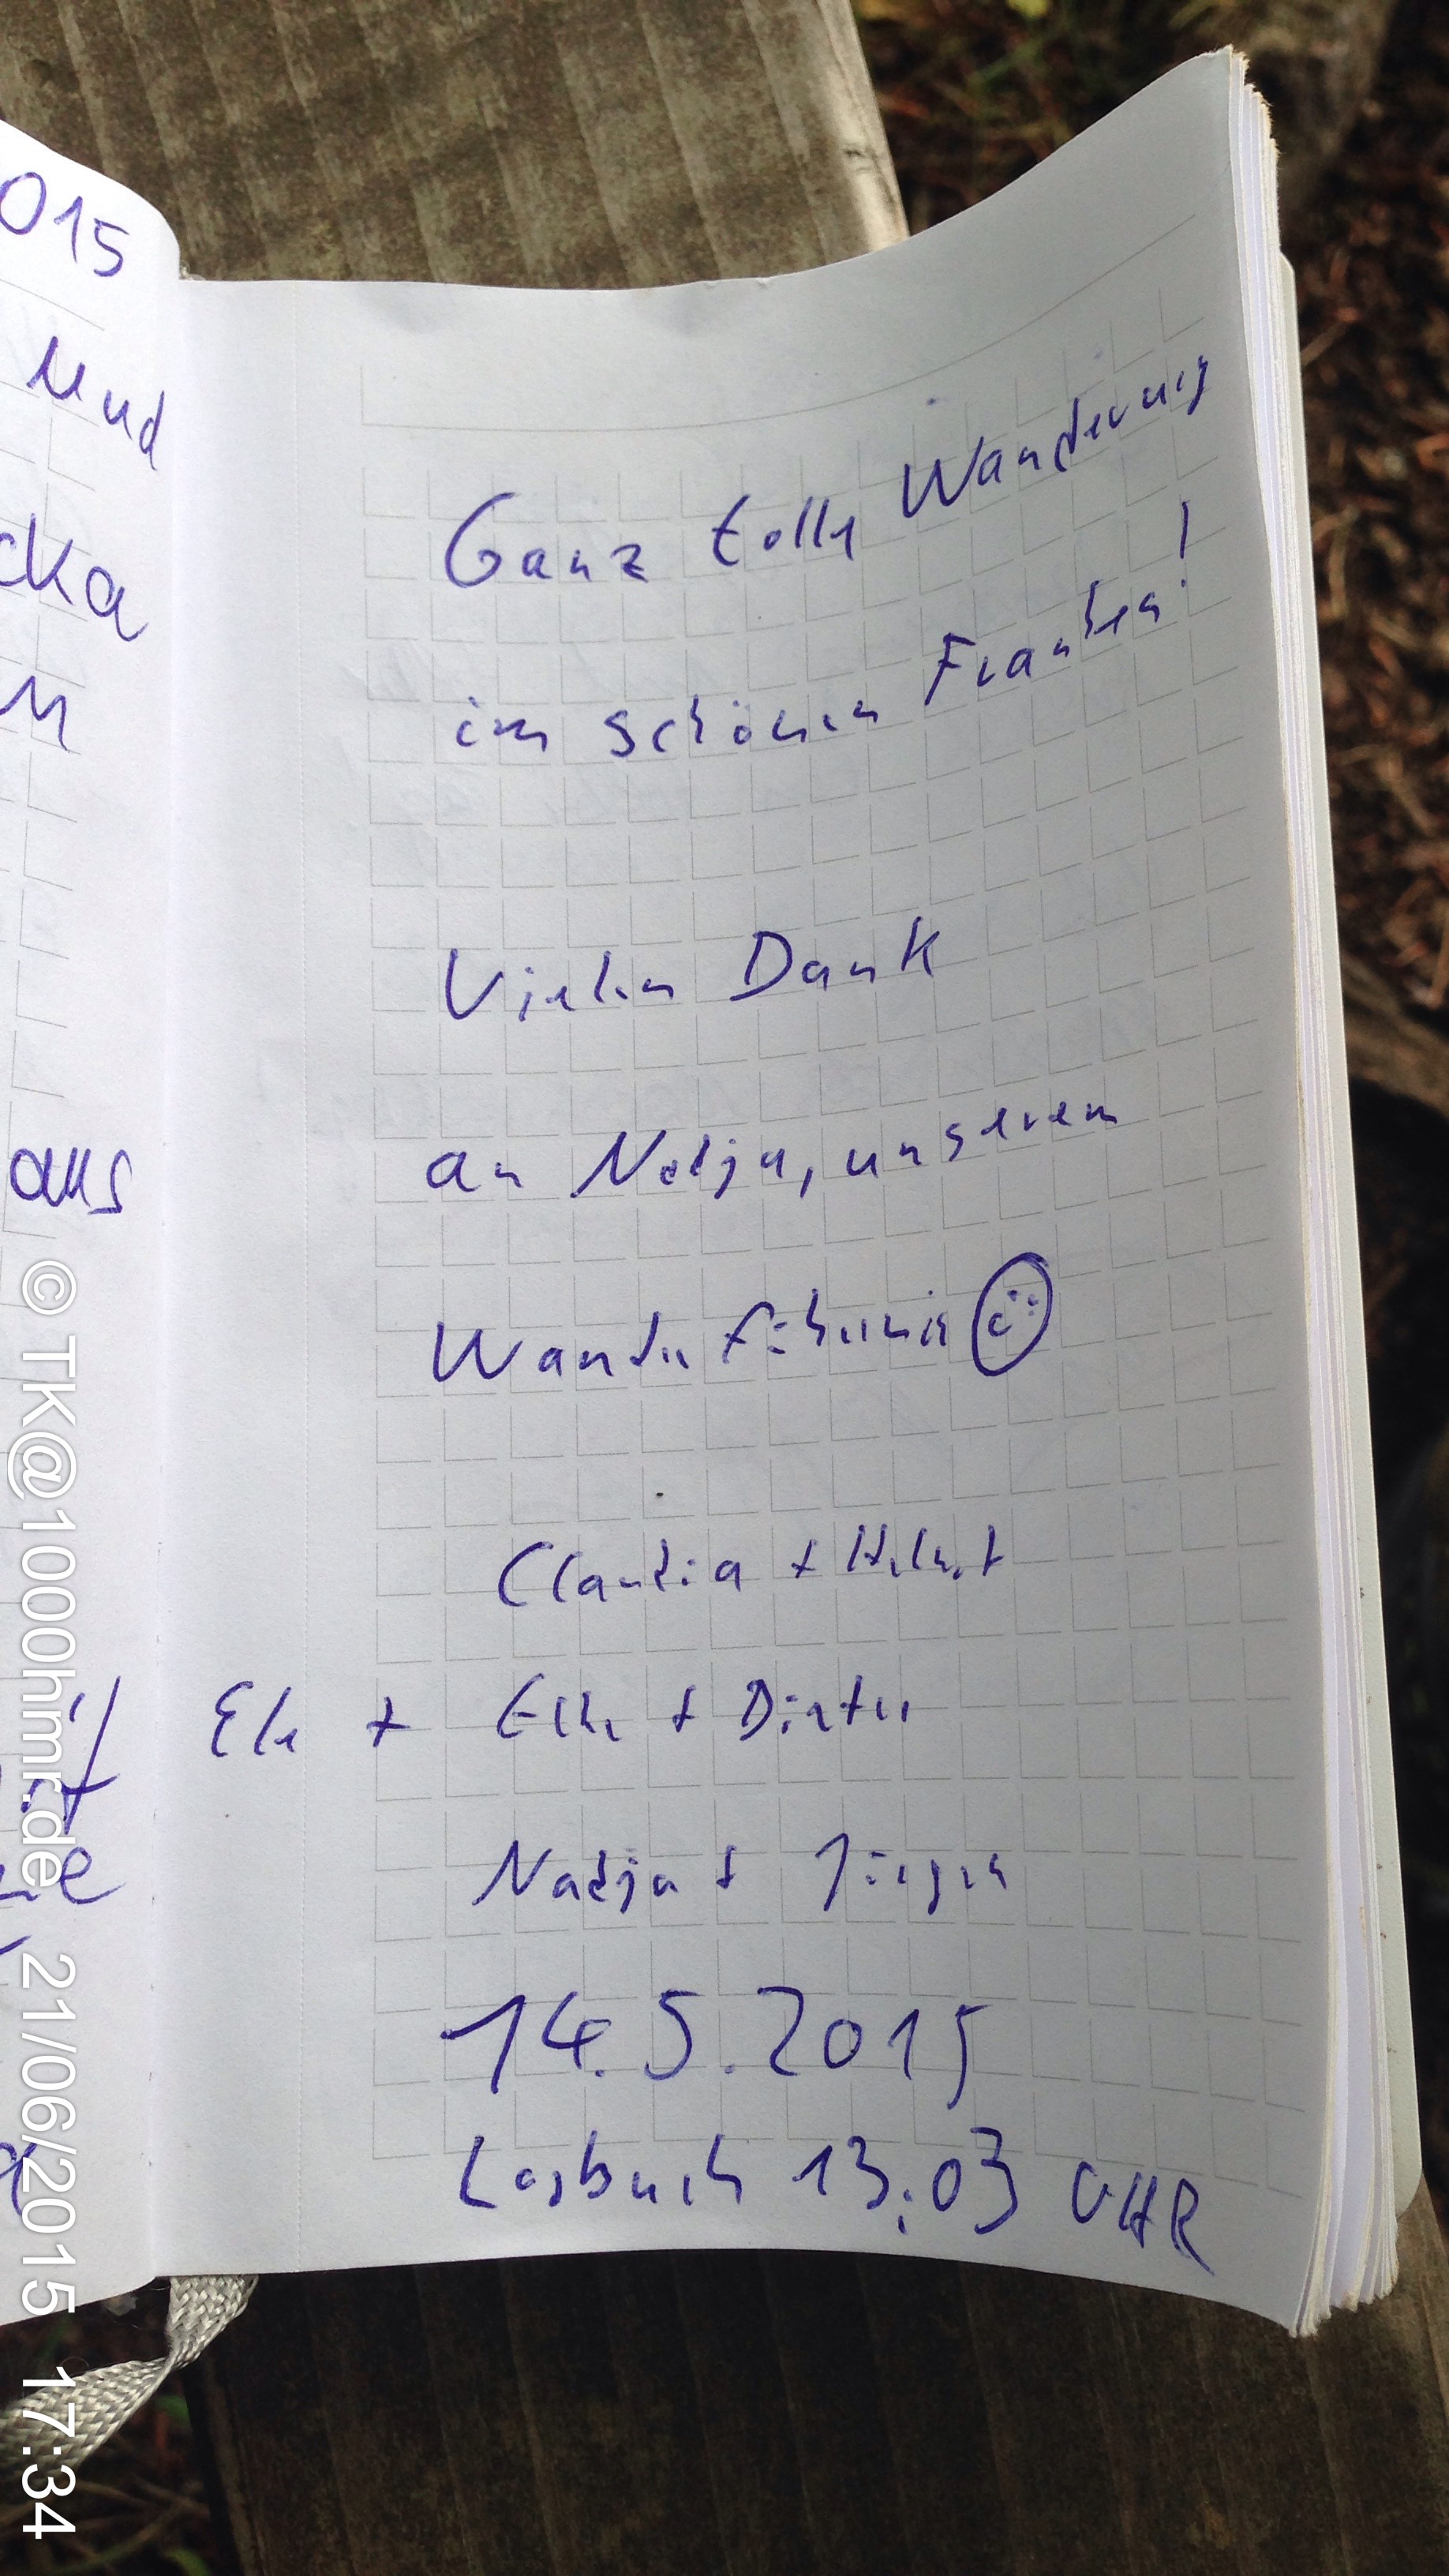 015
und
cka
aus
Ganz tolle Wanderung
im schönen Franken!
Vielen Dank
an Nadja, unserem
Wanderführerin
Claudia + Helmut
Ele + Elke + Dieter
Nadja + Jürgen
14.5.2015
Logbuch 13:03 UHR
© TK@1000hmr.de 21/06/2015 17:34